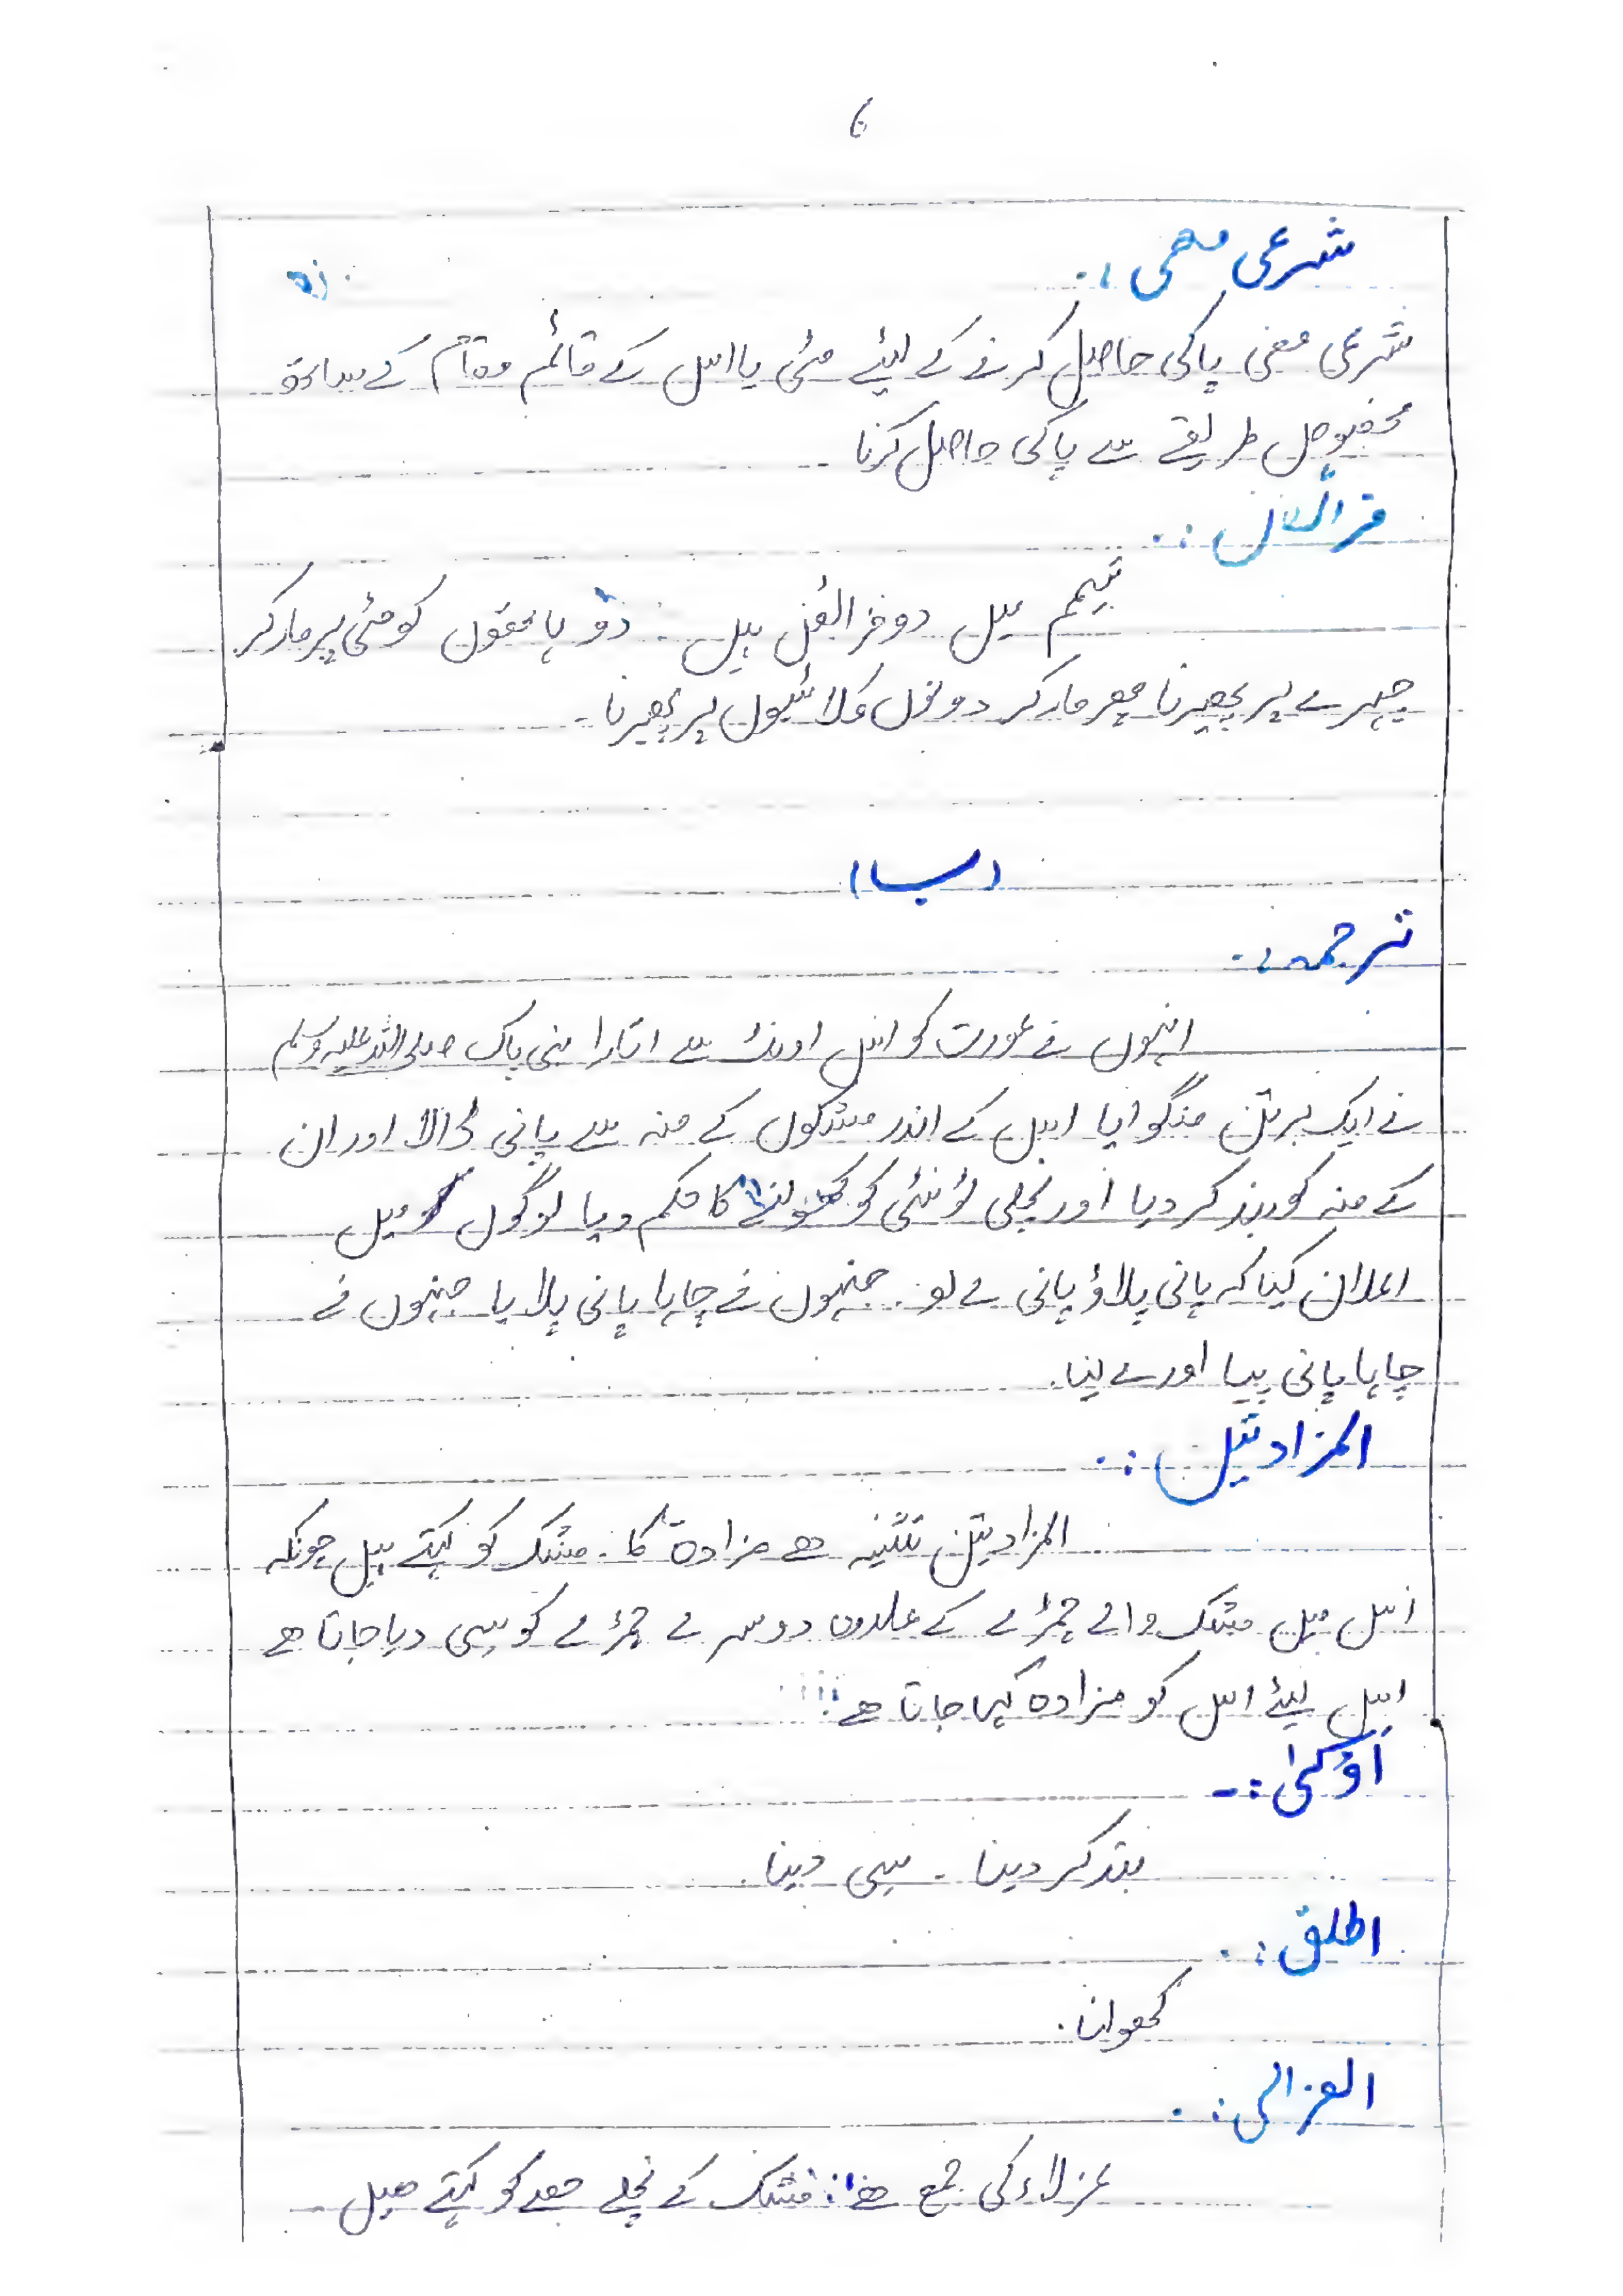 ۶
شرعی معنی :.
شرعی معنی پاکی حاصل کرنے کے لیئے مٹی یا اس کے قائم مقام کے ساتھ
مخصوص طریقے سے پاکی حاصل کرنا
فرائض :.
تیمم میں دو فرائض ہیں : دو ہاتھوں کو مٹی پر مار کر
چہرے پر پھیرنا پھر مار کر دونوں کلائیوں پر پھیرنا۔
(ب)
ترجمہ :.
انہوں نے عورت کو اس اونٹ سے اتارا نبی پاک صلی اللہ علیہ وسلم
نے ایک برتن منگوایا اس کے اندر مشکوں کے منہ سے پانی ڈالا اور ان
کے منہ کو بند کر دیا اور نچلی ٹونٹی کو کھولنے کا حکم دیا لوگوں میں
اعلان کیا کہ پانی پلاؤ پانی لے لو۔ جنہوں نے چاہا پانی پلایا جنہوں نے
چاہا پانی پیا اور لے لیا۔
المزادتین :.
المزادتین تثنیہ ھے مزادۃ کا۔ مشک کو کہتے ہیں چونکہ
اس میں مشک والے چمڑے کے علاوہ دوسرے چمڑے کو سی دیا جاتا ھے
اس لیئے اس کو مزادہ کہا جاتا ھے
أوکی :۔
بند کر دینا ۔ سی دینا۔
اطلق :.
کھولنا۔
العزالی :.
عزلاء کی جمع ھے : مشک کے نچلے حصے کو کہتے ھیں ۔